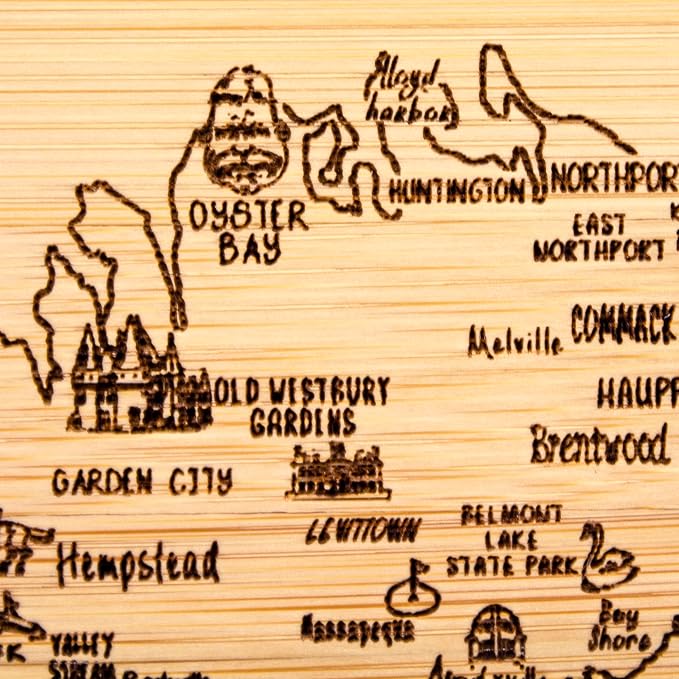 Lloyd
harbor
HUNTINGTON
NORTHPOR
OYSTER
BAY
EAST
NORTHPORT
COMMACK
Melville
OLD WESTBURY
GARDENS
HAUPP
Brentwood
GARDEN CITY
LEVITTOWN
BELMONT
LAKE
STATE PARK
Hempstead
Massapequa
Bay
Shore
K
VALLEY
STREAM